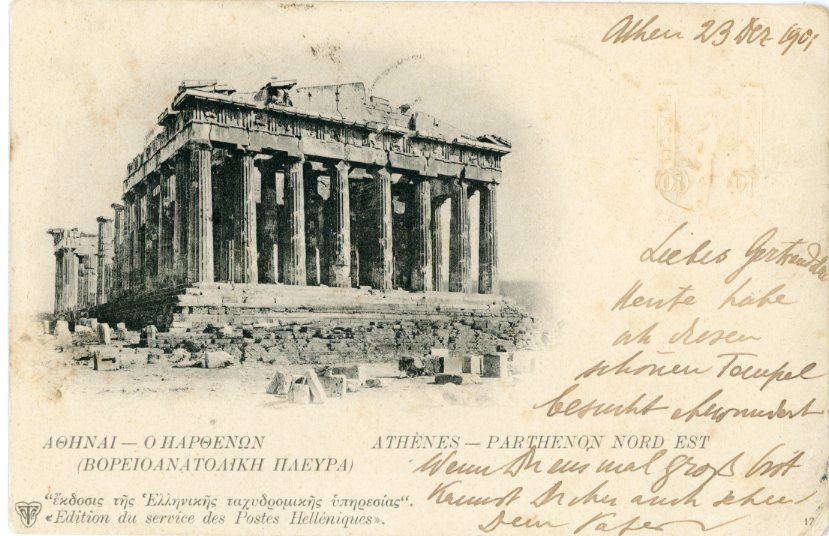 Athen 23 Dez 1901
Liebes Gertrudchen
Heute habe
ich diesen
schönen Tempel
besucht bewundert
Wenn Du einmal groß bist
Kannst Du ihn auch sehen
Dein Vater
ΑΘΗΝΑΙ — Ο ΠΑΡΘΕΝΩΝ
(ΒΟΡΕΙΟΑΝΑΤΟΛΙΚΗ ΠΛΕΥΡΑ)
ATHÈNES — PARTHENON NORD EST
"ἔκδοσις τῆς Ἑλληνικῆς ταχυδρομικῆς ὑπηρεσίας".
«Edition du service des Postes Helléniques».
17